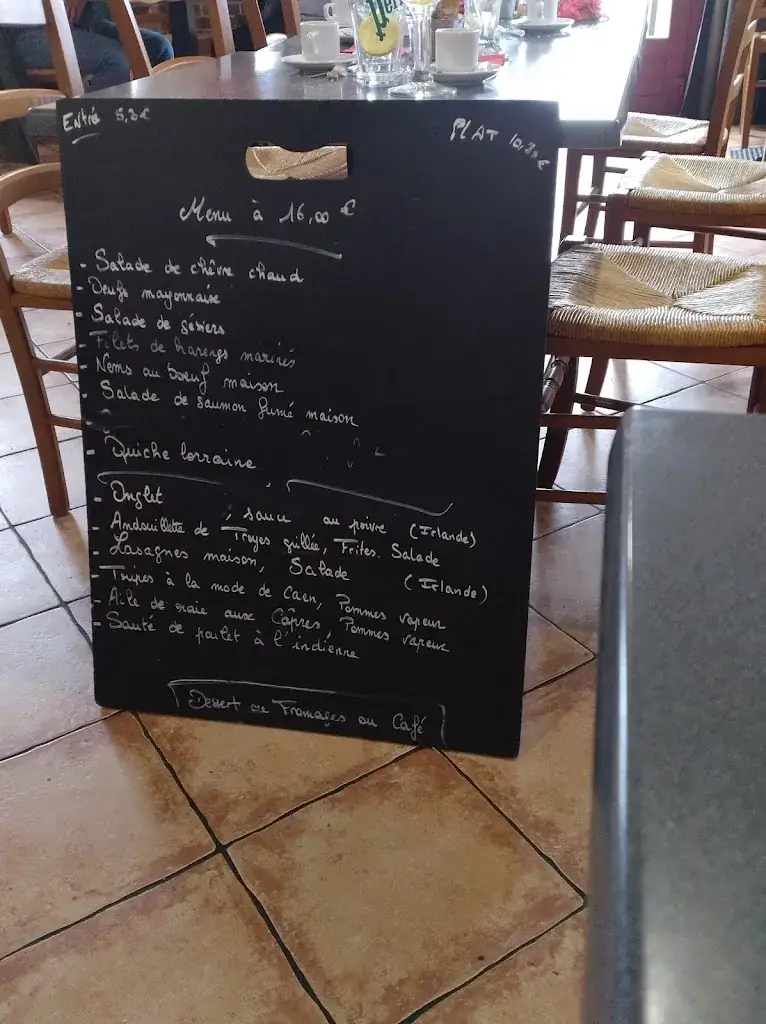 Entrée 5,30€
PLAT 10,20€
Menu à 16,00 €
- Salade de chèvre chaud
- Oeufs mayonnaise
- Salade de gésiers
- Filets de harengs marinés
- Nems au boeuf maison
- Salade de saumon fumé maison
- Quiche lorraine
- Onglet, sauce au poivre (Irlande)
- Andouillette de Troyes grillée, Frites. Salade
- Lasagnes maison, Salade (Irlande)
- Tripes à la mode de Caen, Pommes vapeur
- Aile de raie aux Câpres Pommes vapeur
- Sauté de poulet à l'indienne
Dessert ou Fromages ou Café